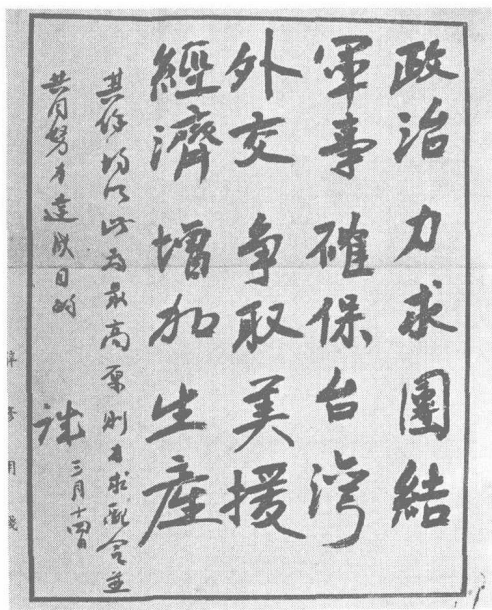 政治 力求團結
軍事 確保台灣
外交 爭取美援
經濟 增加生產
其餘均以此為最高原則力求配合並
共同努力達成目的
誠 三月十四日
辭修用箋